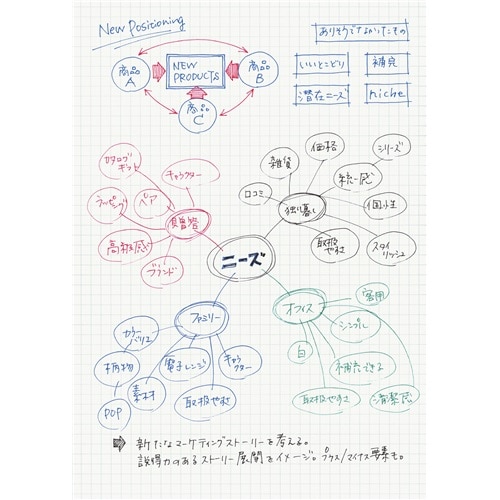 New Positioning
ありそうでなかったもの
商品
A
NEW
PRODUCTS
商品
B
商品
C
いいとこどり
補負
潜在ニーズ
niche
カタログ
ギフト
キャラクター
ラッピング
ペア
贈答
高級感
ブランド
雑貨
価格
シリーズ
口コミ
統一感
独り暮し
個性
取扱
やすさ
スタイ
リッシュ
ニーズ
ファミリー
カラー
バリエ
柄物
電子レンジ
キャラ
クター
素材
取扱やすさ
POP
オフィス
客用
シンプル
白
補充できる
取扱やすさ
清潔感
新たなマーケティングストーリーを考える。
説得力のあるストーリー展開をイメージ。プラス/マイナス要素も。